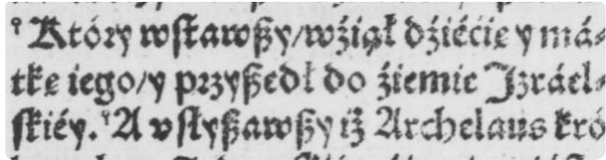 Który wſtawßy/wźiął dźiécię y má⸗
tkę iego/y przyßedł do źiemie Jzráel⸗
ſkiéy. A vſłyßawßy iż Archelaus kró